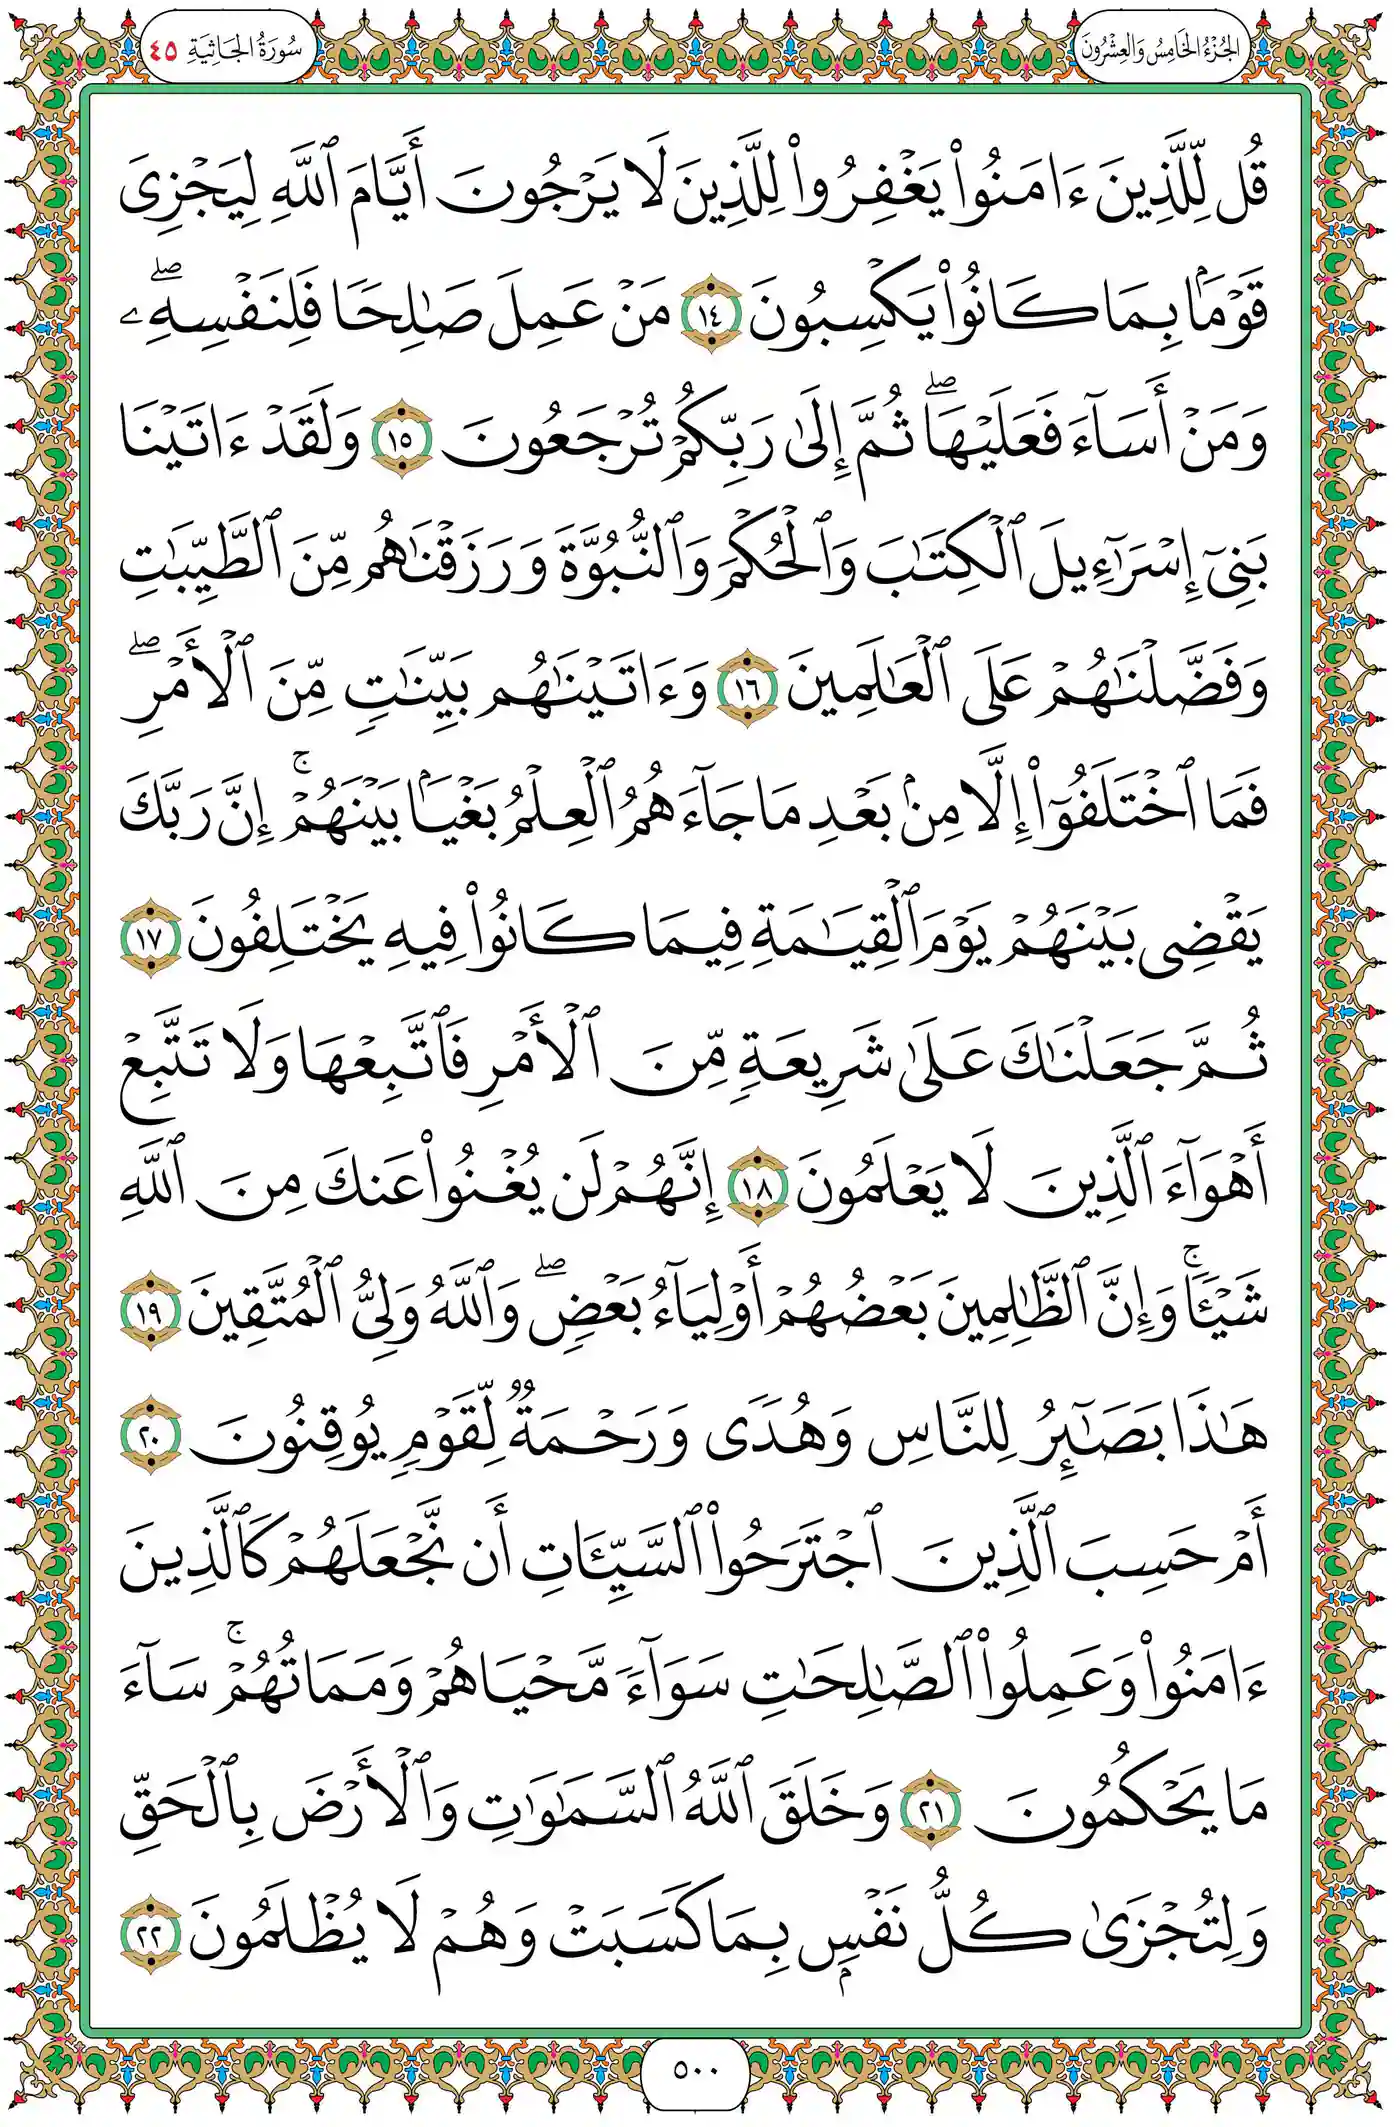 الجُزْءُ الخَامِسُ وَالعِشْرُونَ
سُورَةُ الجَاثِيَةِ ٤٥
قُل لِّلَّذِينَ ءَامَنُوا۟ يَغْفِرُوا۟ لِلَّذِينَ لَا يَرْجُونَ أَيَّامَ ٱللَّهِ لِيَجْزِىَ
قَوْمًۢا بِمَا كَانُوا۟ يَكْسِبُونَ ١٤ مَنْ عَمِلَ صَـٰلِحًا فَلِنَفْسِهِۦ ۖ
وَمَنْ أَسَآءَ فَعَلَيْهَا ۖ ثُمَّ إِلَىٰ رَبِّكُمْ تُرْجَعُونَ ١٥ وَلَقَدْ ءَاتَيْنَا
بَنِىٓ إِسْرَٰٓءِيلَ ٱلْكِتَـٰبَ وَٱلْحُكْمَ وَٱلنُّبُوَّةَ وَرَزَقْنَـٰهُم مِّنَ ٱلطَّيِّبَـٰتِ
وَفَضَّلْنَـٰهُمْ عَلَى ٱلْعَـٰلَمِينَ ١٦ وَءَاتَيْنَـٰهُم بَيِّنَـٰتٍ مِّنَ ٱلْأَمْرِ ۖ
فَمَا ٱخْتَلَفُوٓا۟ إِلَّا مِنۢ بَعْدِ مَا جَآءَهُمُ ٱلْعِلْمُ بَغْيًۢا بَيْنَهُمْ ۚ إِنَّ رَبَّكَ
يَقْضِى بَيْنَهُمْ يَوْمَ ٱلْقِيَـٰمَةِ فِيمَا كَانُوا۟ فِيهِ يَخْتَلِفُونَ ١٧
ثُمَّ جَعَلْنَـٰكَ عَلَىٰ شَرِيعَةٍ مِّنَ ٱلْأَمْرِ فَٱتَّبِعْهَا وَلَا تَتَّبِعْ
أَهْوَآءَ ٱلَّذِينَ لَا يَعْلَمُونَ ١٨ إِنَّهُمْ لَن يُغْنُوا۟ عَنكَ مِنَ ٱللَّهِ
شَيْـًٔا ۚ وَإِنَّ ٱلظَّـٰلِمِينَ بَعْضُهُمْ أَوْلِيَآءُ بَعْضٍ ۖ وَٱللَّهُ وَلِىُّ ٱلْمُتَّقِينَ ١٩
هَـٰذَا بَصَـٰٓئِرُ لِلنَّاسِ وَهُدًى وَرَحْمَةٌ لِّقَوْمٍ يُوقِنُونَ ٢٠
أَمْ حَسِبَ ٱلَّذِينَ ٱجْتَرَحُوا۟ ٱلسَّيِّـَٔاتِ أَن نَّجْعَلَهُمْ كَٱلَّذِينَ
ءَامَنُوا۟ وَعَمِلُوا۟ ٱلصَّـٰلِحَـٰتِ سَوَآءً مَّحْيَاهُمْ وَمَمَاتُهُمْ ۚ سَآءَ
مَا يَحْكُمُونَ ٢١ وَخَلَقَ ٱللَّهُ ٱلسَّمَـٰوَٰتِ وَٱلْأَرْضَ بِٱلْحَقِّ
وَلِتُجْزَىٰ كُلُّ نَفْسٍۭ بِمَا كَسَبَتْ وَهُمْ لَا يُظْلَمُونَ ٢٢
٥٠٠